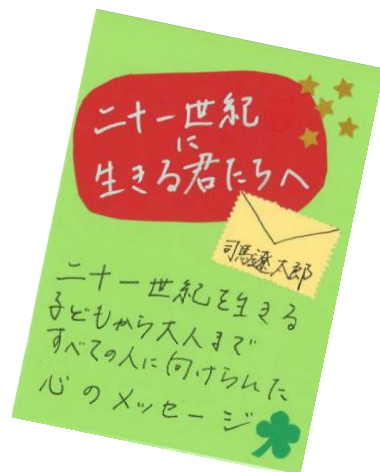 二十一世紀
に
生きる君たちへ
司馬遼太郎
二十一世紀を生きる
子どもから大人まで
すべての人に向けられた
心のメッセージ